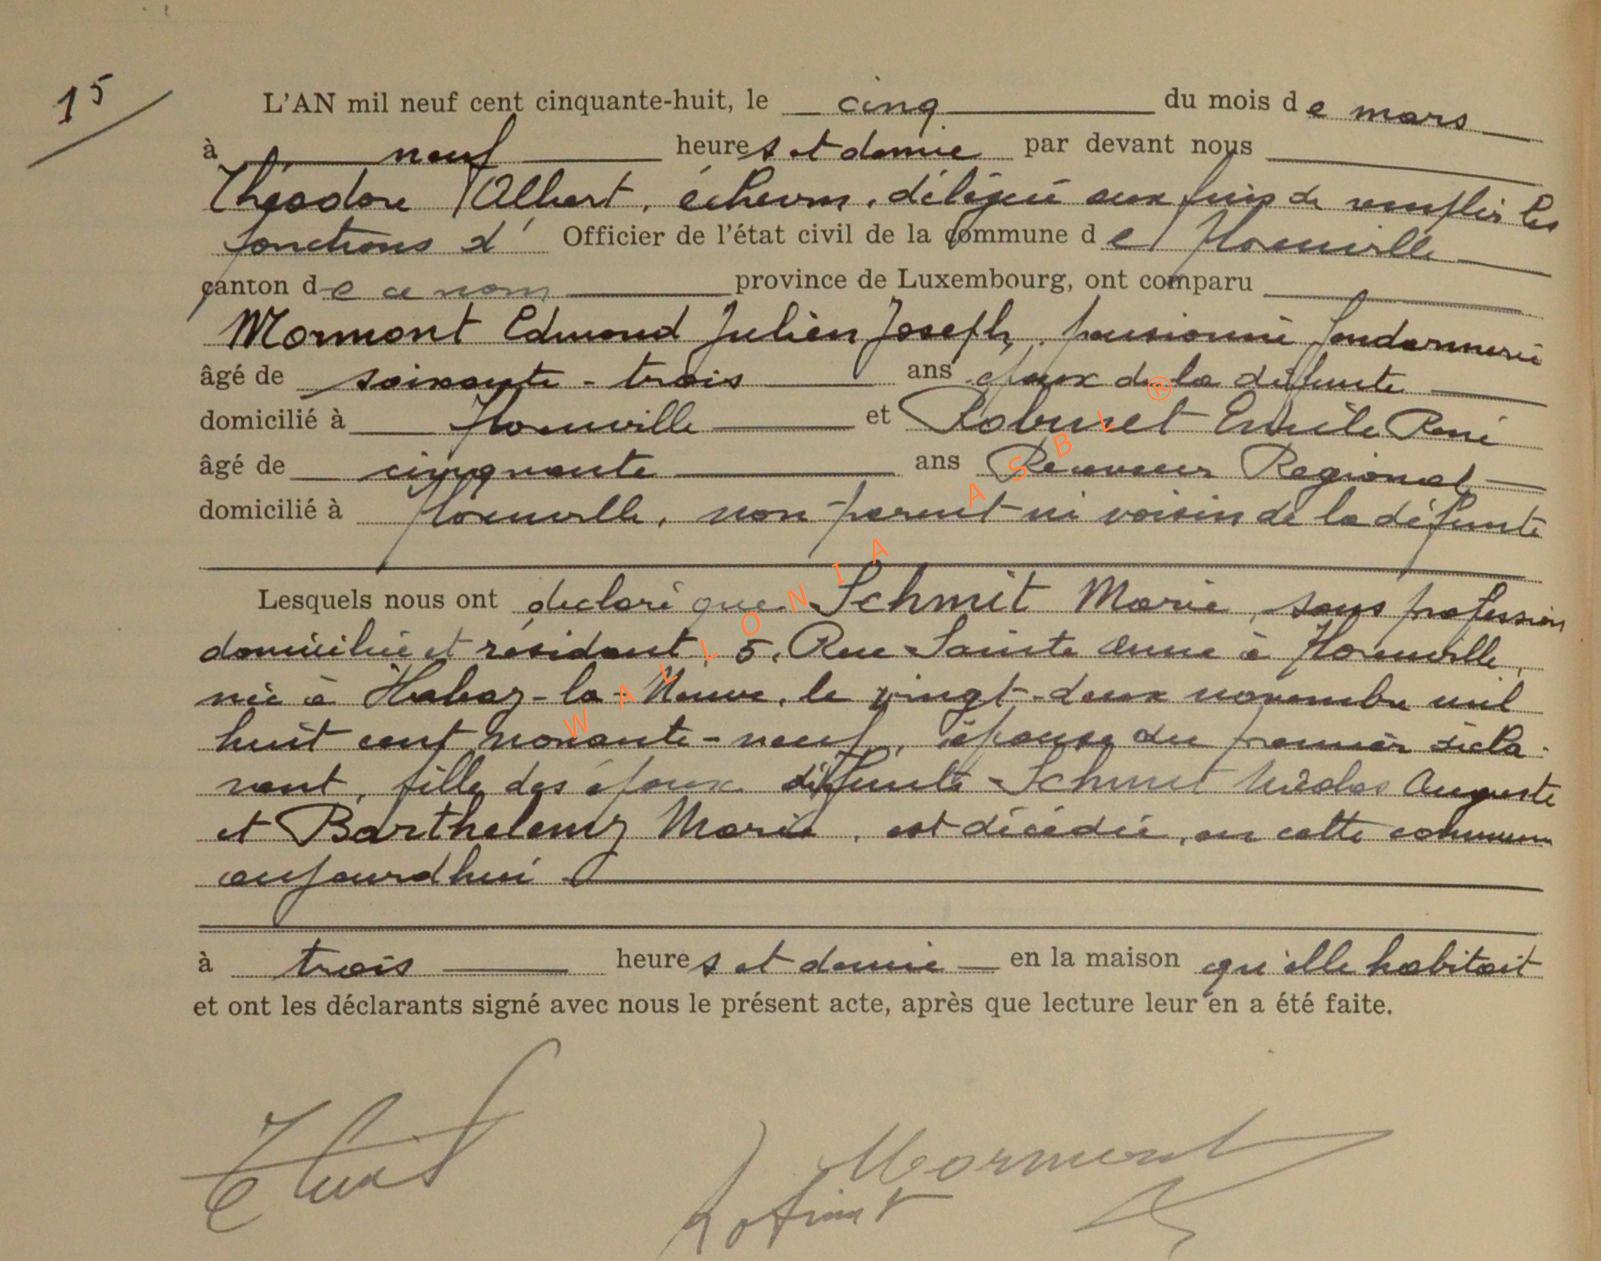 15
L'AN mil neuf cent cinquante-huit, le cinq du mois de mars
à neuf heures et demie par devant nous
Théodore Albert, échevin, délégué aux fins de remplir les
fonctions d' Officier de l'état civil de la commune de Florenville
canton de ce nom province de Luxembourg, ont comparu
Mormont Edmond Julien Joseph, pensionné gendarmerie
âgé de soixante-trois ans époux de la défunte
domicilié à Florenville et Robinet Emile René
âgé de cinquante ans Receveur Regional
domicilié à Florenville, non parent ni voisin de la défunte
Lesquels nous ont declaré que Schmit Marie, sans profession
domiciliée et résidant, 5, Rue Sainte Anne à Florenville,
née à Habay-la-Neuve, le vingt-deux novembre mil
huit cent nonante-neuf, épouse du premier décla-
rant, fille des époux défunts Schmit Nicolas Auguste
et Barthelemy Marie, est décédée, en cette commune
aujourdhui
à trois heures et demie en la maison qu'elle habitait
et ont les déclarants signé avec nous le présent acte, après que lecture leur en a été faite.
Mormont
Robinet
WALLONIA ASBL ®